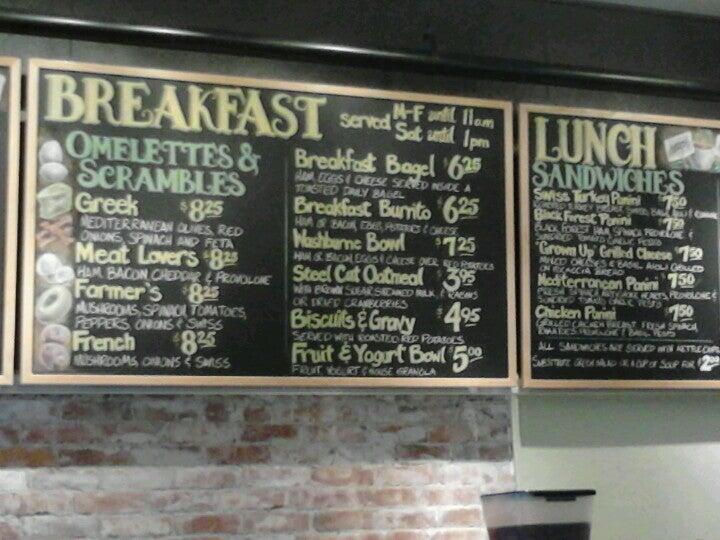 BREAKFAST
served M-F until 11am
Sat until 1pm
OMELETTES &
SCRAMBLES
Greek $8.25
MEDITERRANEAN OLIVES, RED
ONIONS, SPINACH AND FETA
Meat Lover's $8.25
HAM BACON CHEDDAR & PROVOLONE
Farmer's $8.25
MUSHROOMS, SPINACH TOMATOES,
PEPPERS ONIONS & SWISS
French $8.25
MUSHROOMS, ONIONS & SWISS
Breakfast Bagel $6.25
HAM, EGGS & CHEESE SERVED INSIDE A
TOASTED DAILY BAGEL
Breakfast Burrito $6.25
HAM OR BACON, EGGS, POTATOES & CHEESE
Washburne Bowl $7.25
HAM OR BACON EGGS & CHEESE OVER RED POTATOES
Steel Cut Oatmeal $3.95
WITH BROWN SUGAR, STEAMED MILK, & RAISINS
OR DRIED CRANBERRIES
Biscuits & Gravy $4.95
SERVED WITH ROASTED RED POTATOES
Fruit & Yogurt Bowl $5.00
FRUIT, YOGURT & HOUSE GRANOLA
LUNCH
SANDWICHES
Swiss Turkey Panini $7.50
Black Forest Panini $7.50
BLACK FOREST HAM, SPINACH PROVOLONE &
SUNDRIED TOMATO GARLIC PESTO
Grown Up Grilled Cheese $7.50
MIXED CHEESES & BASIL AIOLI GRILLED
ON FOCACCIA BREAD
Mediterranean Panini $7.50
ARTICHOKE HEARTS, PROVOLONE &
SUNDRIED TOMATO GARLIC PESTO
Chicken Panini $7.50
GRILLED CHICKEN BREAST, FRESH SPINACH,
TOMATOES PROVOLONE & BASIL PESTO
ALL SANDWICHES ARE SERVED WITH KETTLE CHIPS
SUBSTITUTE GREEN SALAD OR A CUP OF SOUP FOR $2.00